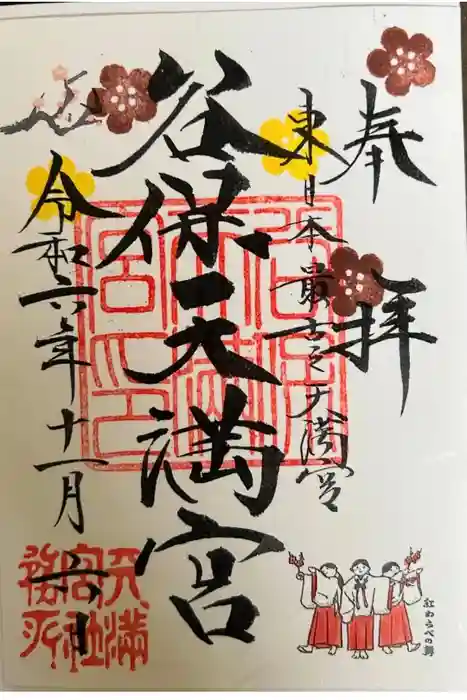 奉拝
東日本最古之天満宮
谷保天満宮
令和六年十一月六日
天満宮社務所
紅わらべの舞